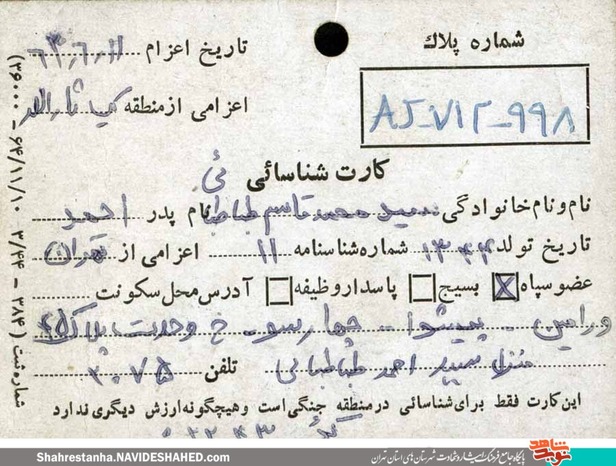 شماره پلاك
AJ-712-998
تاریخ اعزام ۶۳,۶,۱۱
اعزامی از منطقه ثارالله
کارت شناسائی
نام و نام خانوادگی سید محمد قاسم طباطبائی نام پدر احمد
تاریخ تولد ۱۳۴۴ شماره شناسنامه ۱۱ اعزامی از تهران
عضو سپاه بسیج پاسدار وظیفه آدرس محل سکونت
ورامین - پیشوا - چهارسو - خ وحدت پلاك
منزل سید احمد طباطبائی تلفن ۳۰۷۵
این کارت فقط برای شناسائی در منطقه جنگی است و هیچگونه ارزش دیگری ندارد
شماره ثبت ( ۳۸۴ - ۳/۴۴ ۶۴/۱۱/۱۰ - ۳۶۰۰۰ )
Shahrestanha.NAVIDESHAHED.com
پایگاه جامع فرهنگ ایثار و شهادت شهرستان های استان تهران
نوید شاهد